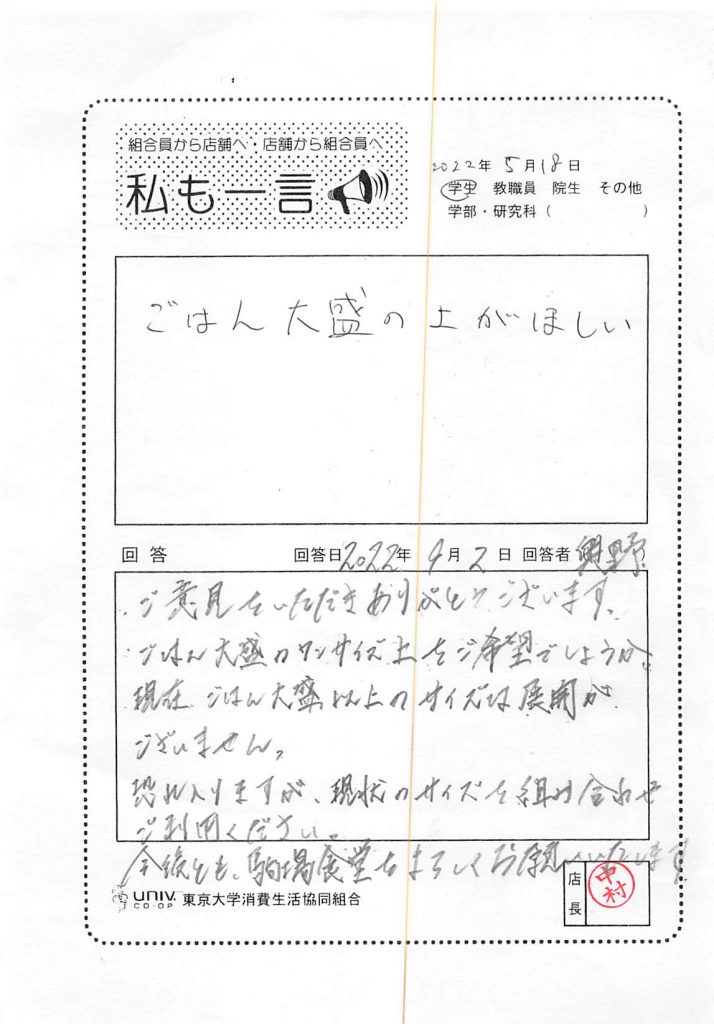 組合員から店舗へ・店舗から組合員へ
私も一言
2022年 5月18日
学生 教職員 院生 その他
学部・研究科( )
ごはん大盛の上がほしい
回答 回答日2022年 月2日 回答者
ご意見をいただきありがとうございます。
ごはん大盛のワンサイズ上をご希望でしょうか。
現在、ごはん大盛以上のサイズは展開が
ございません。
恐れ入りますが、現状のサイズを組み合わせ
ご利用ください。
今後とも、駒場食堂をよろしくお願いいたします。
店長
中村
UNIV. CO-OP 東京大学消費生活協同組合